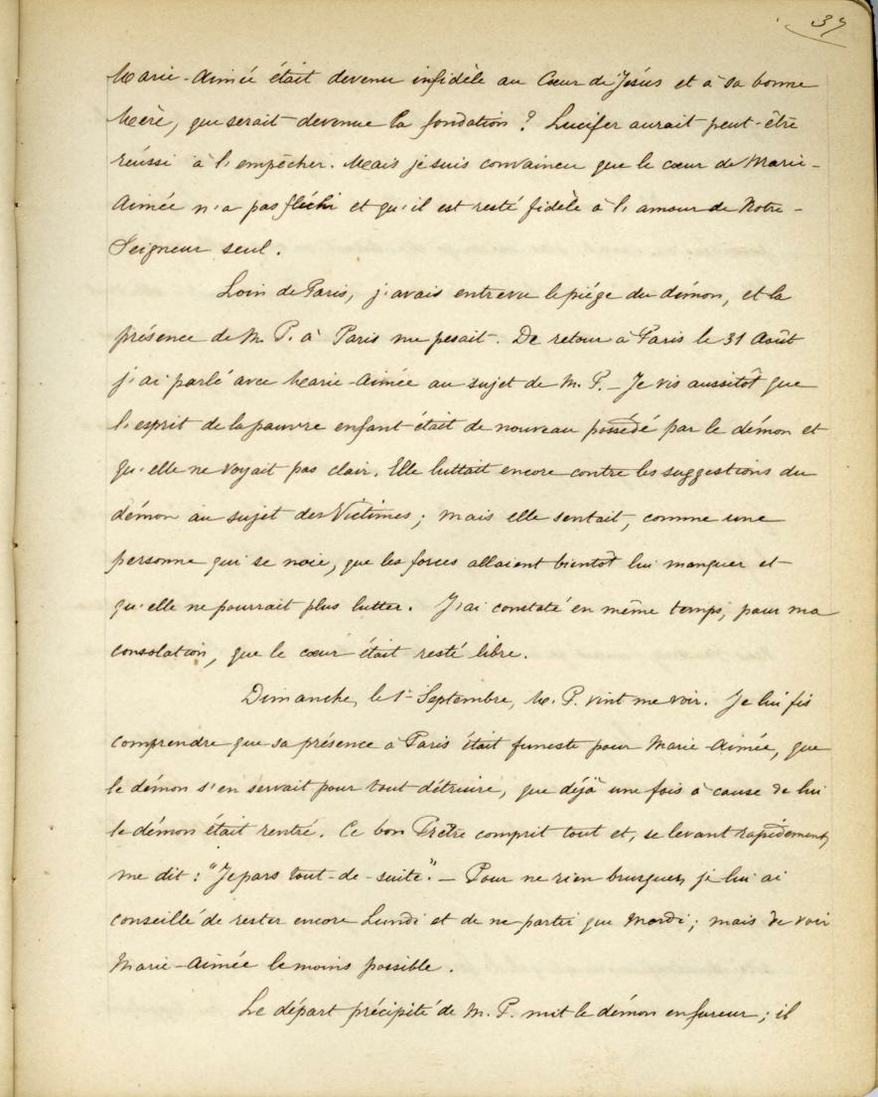 37
Marie-Aimée était devenue infidèle au Cœur de Jésus et à sa bonne
Mère, que serait devenue la fondation ? Lucifer aurait peut-être
réussi à l'empêcher. Mais je suis convaincu que le cœur de Marie-
Aimée n'a pas fléchi et qu'il est resté fidèle à l'amour de Notre-
Seigneur seul.
Loin de Paris, j'avais entrevu le piége du démon, et la
présence de M. P. à Paris me pesait. De retour à Paris le 31 Août
j'ai parlé avec Marie-Aimée au sujet de M. P. – Je vis aussitôt que
l'esprit de la pauvre enfant était de nouveau possédé par le démon et
qu'elle ne voyait pas clair. Elle luttait encore contre les suggestions du
démon au sujet des Victimes ; mais elle sentait, comme une
personne qui se noie, que les forces allaient bientôt lui manquer et
qu'elle ne pourrait plus lutter. J'ai constaté en même temps, pour ma
consolation, que le cœur était resté libre.
Dimanche, le 1er Septembre, M. P. vint me voir. Je lui fis
comprendre que sa présence à Paris était funeste pour Marie-Aimée, que
le démon s'en servait pour tout détruire, que déjà une fois à cause de lui
le démon était rentré. Ce bon Prêtre comprit tout et, se levant rapidement,
me dit : "Je pars tout-de-suite". – Pour ne rien brusquer, je lui ai
conseillé de rester encore Lundi et de ne partir que Mardi ; mais de voir
Marie-Aimée le moins possible.
Le départ précipité de M. P. mit le démon en fureur ; il